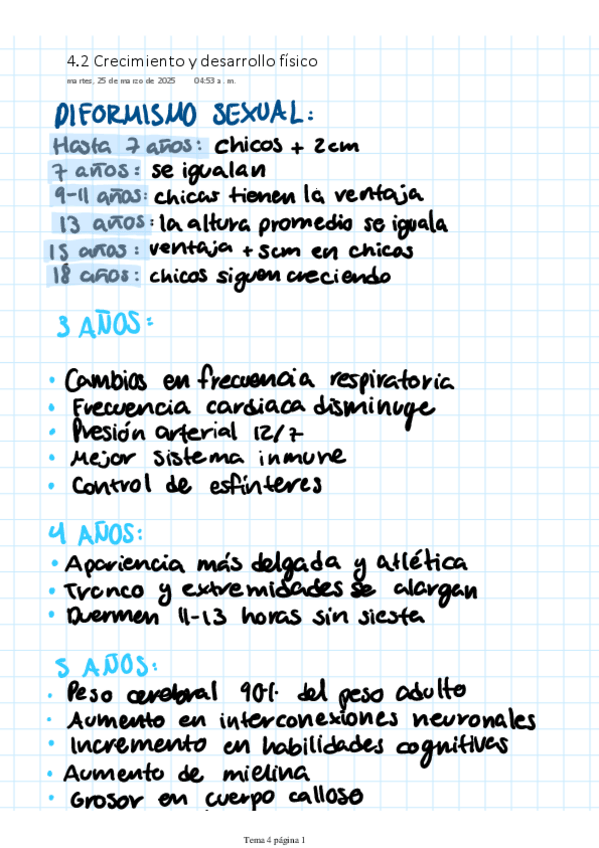 4.2 Crecimiento y desarrollo físico
martes, 25 de marzo de 2025 04:53 a. m.
DIFORMISMO SEXUAL:
Hasta 7 años: chicos + 2cm
7 años: se igualan
9-11 años: chicas tienen la ventaja
13 años: la altura promedio se iguala
15 años: ventaja +5cm en chicos
18 años: chicos siguen creciendo
3 AÑOS:
• Cambios en frecuencia respiratoria
• Frecuencia cardiaca disminuye
• Presión arterial 12/7
• Mejor sistema inmune
• Control de esfínteres
4 AÑOS:
• Apariencia más delgada y atlética
• Tronco y extremidades se alargan
• Duermen 11-13 horas sin siesta
5 AÑOS:
• Peso cerebral 90% del peso adulto
• Aumento en interconexiones neuronales
• Incremento en habilidades cognitivas
• Aumento de mielina
• Grosor en cuerpo calloso
Tema 4 página 1